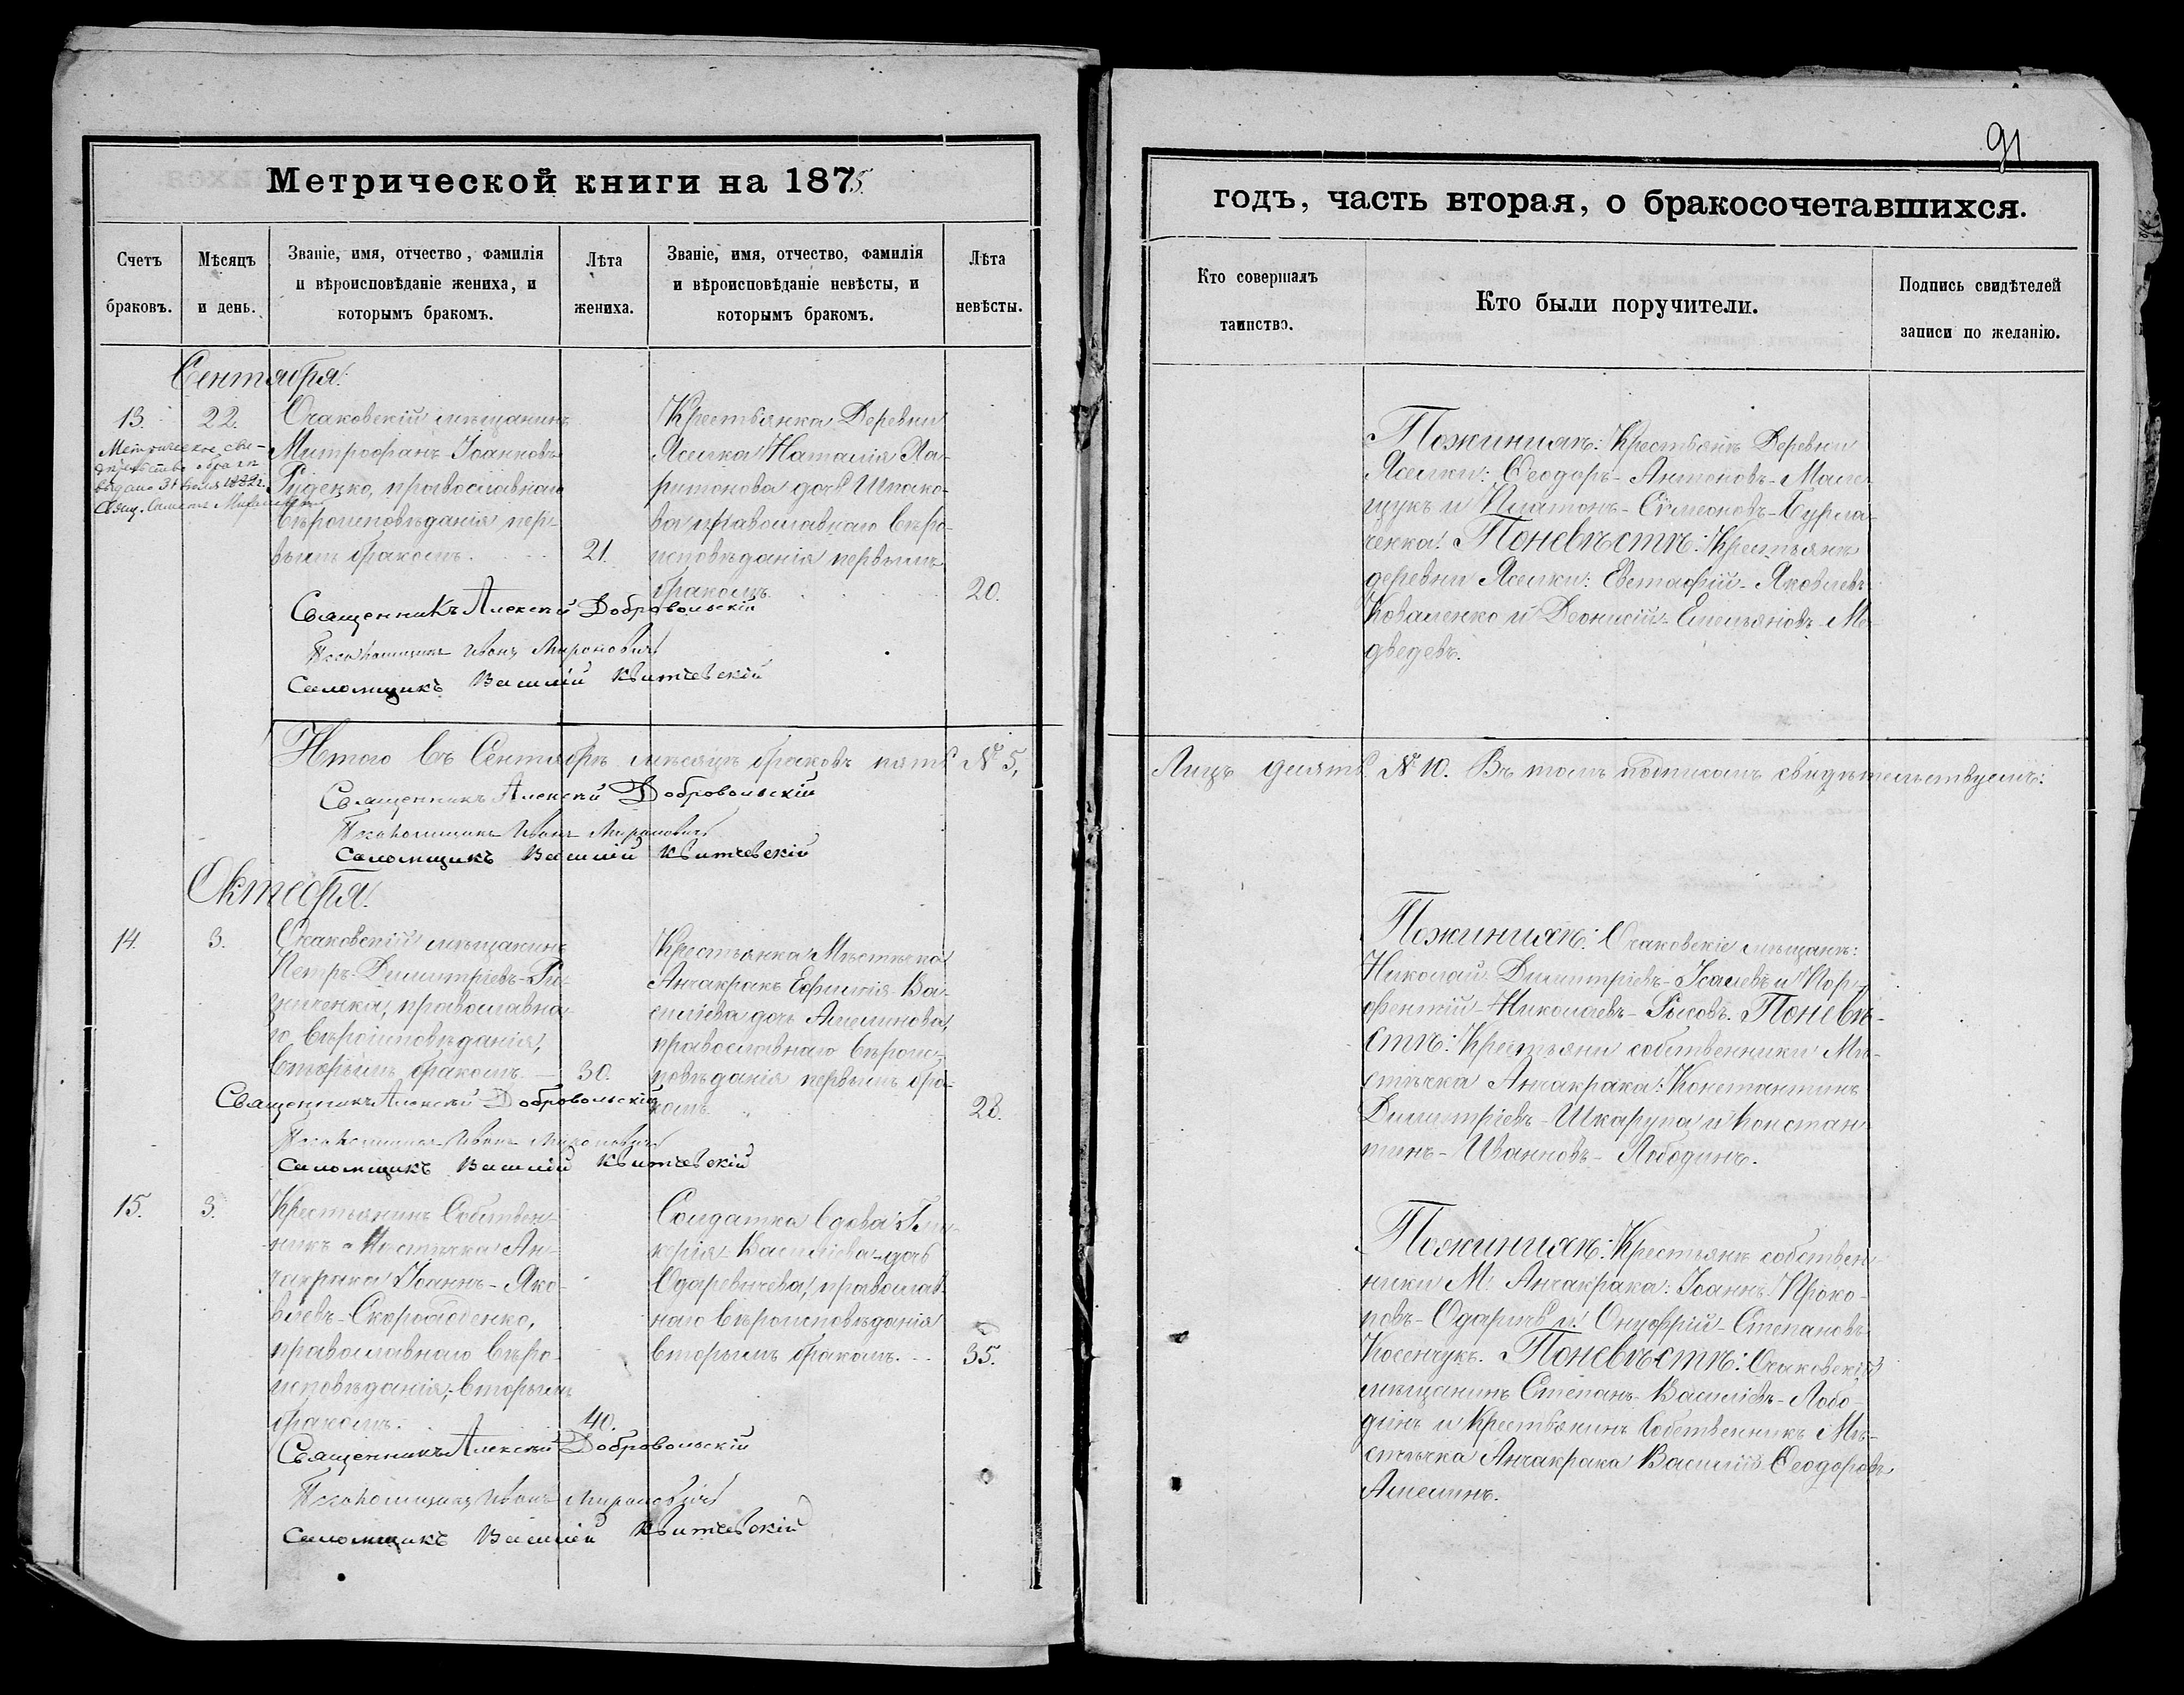 Метрической книги на 1875
Счетъ браковъ.
Мѣсяцъ и день.
Званіе, имя, отчество, фамилія
и вѣроисповѣданіе жениха, и
которымъ бракомъ.
Лѣта жениха.
Званіе, имя, отчество, фамилія
и вѣроисповѣданіе невѣсты, и
которымъ бракомъ.
Лѣта невѣсты.
Сентября.
13.
22.
Метрическое сви-
дѣтельство
выдано 31
Очаковскій мѣщанинъ
Митрофанъ Іоанновъ
Руденко, православнаго
вѣроисповѣданія пер-
вымъ бракомъ.
21.
Крестьянка Деревни
Яселка Наталія Ха-
ритонова дочь Шпако-
ва православнаго вѣро-
исповѣданія первымъ
бракомъ.
20.
Священникъ Алексѣй Добровольскій
Псаломщикъ Иванъ Мироновичъ
Саломщикъ Василій Квитчевскій
Итого въ Сентябрѣ мѣсяцѣ браковъ пять № 5,
Священникъ Алексѣй Добровольскій
Псаломщикъ Иванъ Мироновичъ
Саломщикъ Василій Квитчевскій
Октября.
14.
3.
Очаковскій мѣщанинъ
Петръ-Димитріевъ-
православна-
го вѣроисповѣданія,
вторымъ бракомъ.
30.
Крестьянка Мѣстечка
Анчакракъ Ефимія Ва-
силіева дочь Амелинова,
православнаго вѣроис-
повѣданія первымъ бра-
комъ.
28.
Священникъ Алексѣй Добровольскій
Псаломщикъ Иванъ Мироновичъ
Саломщикъ Василій Квитчевскій
15.
3.
Крестьянинъ Собствен-
никъ Мѣстечка Ан-
чакрака Іоаннъ-Яко-
влевъ-Скоробогденко,
православнаго вѣро-
исповѣданія, вторымъ
бракомъ.
40.
Солдатка вдова Гли-
керія Василіева-дочь
Одаревичева, православ-
наго вѣроисповѣданія
вторымъ бракомъ.
35.
Священникъ Алексѣй Добровольскій
Псаломщикъ Иванъ Мироновичъ
Саломщикъ Василій Квитчевскій
91
годъ, часть вторая, о бракосочетавшихся.
Кто совершалъ таинство.
Кто были поручители.
Подпись свидѣтелей
записи по желанію.
Поженихѣ: Крестьянѣ Деревни
Яселки: Ѳеодоръ-Антоновъ-Маме-
щукъ и Платонъ-Симеоновъ-Бурла-
ченка. Поневѣстѣ: Крестьянѣ
деревни Яселки: Евстафій-Яковлевъ
Коваленко и Діонисій-Емельяновъ-Ме-
дведевъ.
Лицъ десять № 10. Въ томъ подписомъ свидѣтельствуемъ:
Поженихѣ: Очаковскіе мѣщанѣ:
Николай Димитріевъ-Исаевъ и Пор-
фентій-Николаевъ-Рысовъ. Поневѣ-
стѣ: Крестьяни собственники Мѣ-
стечка Анчакрака: Константинъ
Димитріевъ-Шкарупа и Констан-
тинъ-Ивановъ-Лободинъ.
Поженихѣ: Крестьянѣ собствен-
ники М. Анчакрака: Іоаннъ-Проко-
повъ-Одаричъ и Онуфрій-Степановъ
Косенчукъ. Поневѣстѣ: Очаковскій
мѣщанинъ Степанъ-Василіевъ-Лобо-
динъ и Крестьянинъ Собственникъ Мѣ-
стечка Анчакрака Василій-Ѳеодоровъ
Амелинъ.